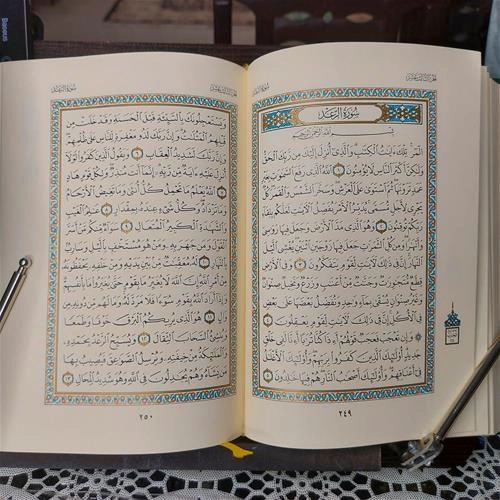 سُورَةُ الرَّعْدِ
الجزء الثالث عشر
سُورَةُ الرَّعْدِ
بِسْمِ ٱللَّهِ ٱلرَّحْمَٰنِ ٱلرَّحِيمِ
الٓمٓر ۚ تِلْكَ ءَايَٰتُ ٱلْكِتَٰبِ ۗ وَٱلَّذِىٓ أُنزِلَ إِلَيْكَ مِن رَّبِّكَ ٱلْحَقُّ
وَلَٰكِنَّ أَكْثَرَ ٱلنَّاسِ لَا يُؤْمِنُونَ ١ ٱللَّهُ ٱلَّذِى رَفَعَ ٱلسَّمَٰوَٰتِ بِغَيْرِ
عَمَدٍ تَرَوْنَهَا ۖ ثُمَّ ٱسْتَوَىٰ عَلَى ٱلْعَرْشِ ۖ وَسَخَّرَ ٱلشَّمْسَ وَٱلْقَمَرَ ۖ كُلٌّ
يَجْرِى لِأَجَلٍ مُّسَمًّى ۚ يُدَبِّرُ ٱلْأَمْرَ يُفَصِّلُ ٱلْءَايَٰتِ لَعَلَّكُم بِلِقَآءِ
رَبِّكُمْ تُوقِنُونَ ٢ وَهُوَ ٱلَّذِى مَدَّ ٱلْأَرْضَ وَجَعَلَ فِيهَا رَوَٰسِىَ
وَأَنْهَٰرًا ۖ وَمِن كُلِّ ٱلثَّمَرَٰتِ جَعَلَ فِيهَا زَوْجَيْنِ ٱثْنَيْنِ ۖ يُغْشِى ٱلَّيْلَ
ٱلنَّهَارَ ۚ إِنَّ فِى ذَٰلِكَ لَءَايَٰتٍ لِّقَوْمٍ يَتَفَكَّرُونَ ٣ وَفِى ٱلْأَرْضِ
قِطَعٌ مُّتَجَٰوِرَٰتٌ وَجَنَّٰتٌ مِّنْ أَعْنَٰبٍ وَزَرْعٌ وَنَخِيلٌ صِنْوَانٌ
وَغَيْرُ صِنْوَانٍ يُسْقَىٰ بِمَآءٍ وَٰحِدٍ وَنُفَضِّلُ بَعْضَهَا عَلَىٰ بَعْضٍ
فِى ٱلْأُكُلِ ۚ إِنَّ فِى ذَٰلِكَ لَءَايَٰتٍ لِّقَوْمٍ يَعْقِلُونَ ٤
۞ وَإِن تَعْجَبْ فَعَجَبٌ قَوْلُهُمْ أَءِذَا كُنَّا تُرَٰبًا أَءِنَّا لَفِى خَلْقٍ
جَدِيدٍ ۗ أُو۟لَٰٓئِكَ ٱلَّذِينَ كَفَرُوا۟ بِرَبِّهِمْ ۖ وَأُو۟لَٰٓئِكَ ٱلْأَغْلَٰلُ
فِىٓ أَعْنَاقِهِمْ ۖ وَأُو۟لَٰٓئِكَ أَصْحَٰبُ ٱلنَّارِ ۖ هُمْ فِيهَا خَٰلِدُونَ ٥
٢٤٩
الجزء الثالث عشر
سُورَةُ الرَّعْدِ
وَيَسْتَعْجِلُونَكَ بِٱلسَّيِّئَةِ قَبْلَ ٱلْحَسَنَةِ وَقَدْ خَلَتْ مِن
قَبْلِهِمُ ٱلْمَثُلَٰتُ ۗ وَإِنَّ رَبَّكَ لَذُو مَغْفِرَةٍ لِّلنَّاسِ عَلَىٰ ظُلْمِهِمْ ۖ
وَإِنَّ رَبَّكَ لَشَدِيدُ ٱلْعِقَابِ ٦ وَيَقُولُ ٱلَّذِينَ كَفَرُوا۟ لَوْلَآ
أُنزِلَ عَلَيْهِ ءَايَةٌ مِّن رَّبِّهِۦٓ ۗ إِنَّمَآ أَنتَ مُنذِرٌ ۖ وَلِكُلِّ قَوْمٍ هَادٍ
٧ ٱللَّهُ يَعْلَمُ مَا تَحْمِلُ كُلُّ أُنثَىٰ وَمَا تَغِيضُ ٱلْأَرْحَامُ
وَمَا تَزْدَادُ ۖ وَكُلُّ شَىْءٍ عِندَهُۥ بِمِقْدَارٍ ٨ عَٰلِمُ ٱلْغَيْبِ
وَٱلشَّهَٰدَةِ ٱلْكَبِيرُ ٱلْمُتَعَالِ ٩ سَوَآءٌ مِّنكُم مَّنْ أَسَرَّ
ٱلْقَوْلَ وَمَن جَهَرَ بِهِۦ وَمَنْ هُوَ مُسْتَخْفٍۭ بِٱلَّيْلِ وَسَارِبٌۢ
بِٱلنَّهَارِ ١٠ لَهُۥ مُعَقِّبَٰتٌ مِّنۢ بَيْنِ يَدَيْهِ وَمِنْ خَلْفِهِۦ يَحْفَظُونَهُۥ
مِنْ أَمْرِ ٱللَّهِ ۗ إِنَّ ٱللَّهَ لَا يُغَيِّرُ مَا بِقَوْمٍ حَتَّىٰ يُغَيِّرُوا۟ مَا بِأَنفُسِهِمْ ۗ
وَإِذَآ أَرَادَ ٱللَّهُ بِقَوْمٍ سُوٓءًا فَلَا مَرَدَّ لَهُۥ ۚ وَمَا لَهُم مِّن دُونِهِۦ مِن
وَالٍ ١١ هُوَ ٱلَّذِى يُرِيكُمُ ٱلْبَرْقَ خَوْفًا وَطَمَعًا
وَيُنشِئُ ٱلسَّحَابَ ٱلثِّقَالَ ١٢ وَيُسَبِّحُ ٱلرَّعْدُ بِحَمْدِهِۦ
وَٱلْمَلَٰٓئِكَةُ مِنْ خِيفَتِهِۦ وَيُرْسِلُ ٱلصَّوَٰعِقَ فَيُصِيبُ بِهَا
مَن يَشَآءُ وَهُمْ يُجَٰدِلُونَ فِى ٱللَّهِ وَهُوَ شَدِيدُ ٱلْمِحَالِ ١٣
٢٥٠
Baseus